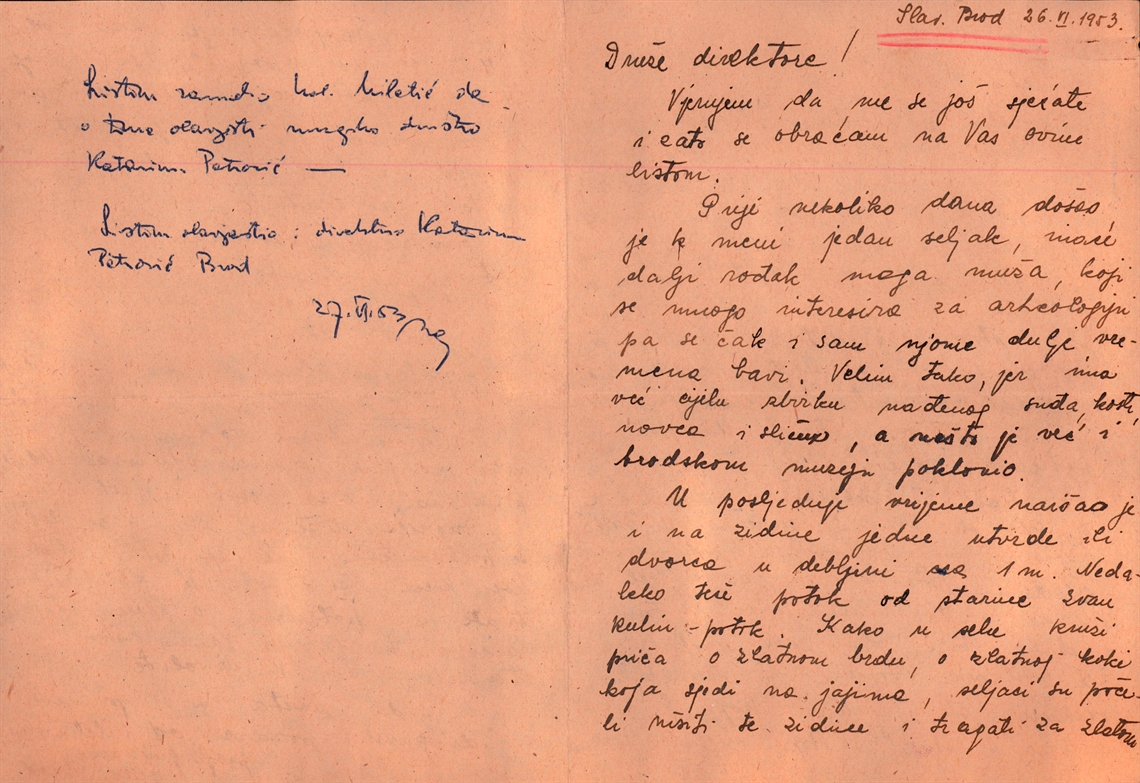 Listom zamoliti kol. Miletić da
o tome obavijesti muzejsko društvo
Katarina Petrović —
Listom obavještena i direktno Katarina
Petrović Brod
27.VI.53
Slav. Brod 26.VI.1953.
Druže direktore!
Vjerujem da me se još sjećate
i zato se obraćam na Vas ovim
listom.
Prije nekoliko dana došao
je k meni jedan seljak, inače
dalji rođak moga muža, koji
se mnogo interesira za arheologiju
pa se čak i sam njome dulje vre-
mena bavi. Velim tako, jer ima
već cijelu zbirku nađenog suđa, kosti,
novca i slično, a nešto je već i
brodskom muzeju poklonio.
U posljednje vrijeme naišao je
i na zidine jedne utvrde ili
dvorca u debljini 1 m. Neda-
leko teče potok od starine zvan
Kulin-potok. Kako u selu kruži
priča o zlatnom brdu, o zlatnoj koki
koja sjedi na jajima, seljaci su poče-
li rušiti te zidine i tragati za zlatom